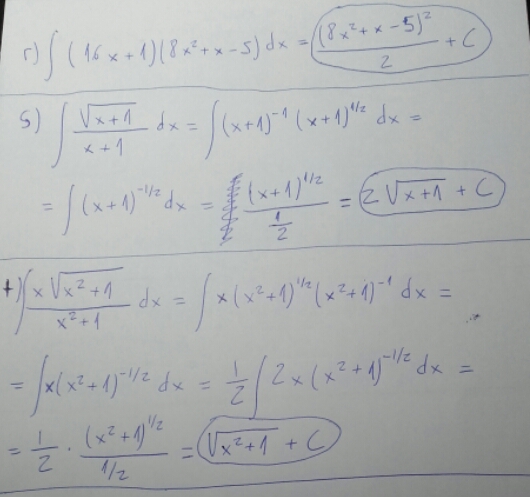 r) ∫ (16x+1)(8x²+x-5) dx = (8x²+x-5)²/2 + C
s) ∫ √(x+1)/(x+1) dx = ∫ (x+1)⁻¹ (x+1)^(1/2) dx =
= ∫ (x+1)^(-1/2) dx = (x+1)^(1/2)/(1/2) = 2√(x+1) + C
t) ∫ x√(x²+1)/(x²+1) dx = ∫ x(x²+1)^(1/2) (x²+1)⁻¹ dx =
= ∫ x(x²+1)^(-1/2) dx = 1/2 ∫ 2x(x²+1)^(-1/2) dx =
= 1/2 · (x²+1)^(1/2)/(1/2) = √(x²+1) + C